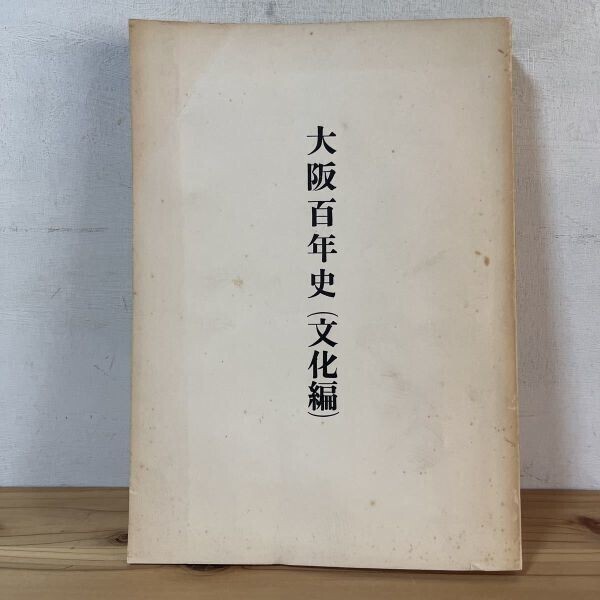 大阪百年史(文化編)